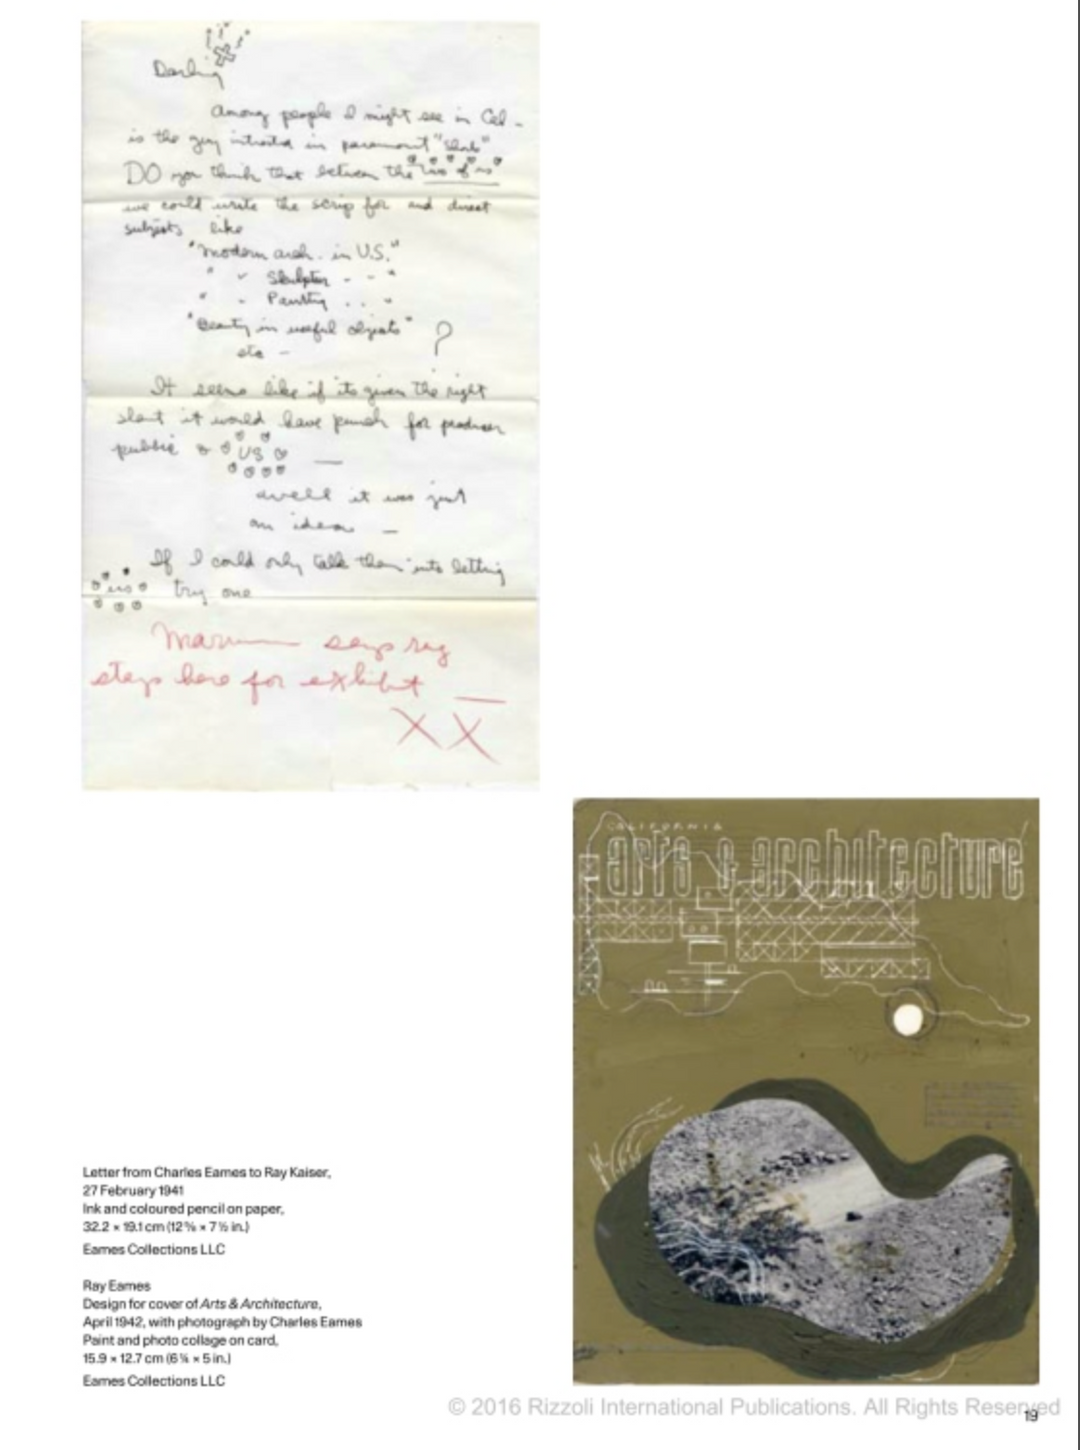 Darling
Among people I might see in Cal -
is the guy intrested in paramount "Shorts"
DO you think that between the us of us
we could write the scrip for and direct
subjects like
"Modern arch. in U.S."
" " Sculptur - - "
" " Painting . . "
"Beauty in useful objects" ?
etc -
It seems like if its given the right
slant it would have punch for producer
public & US —
well it was just
an idea —
If I could only talk them into letting
us try one
says ray
stays here for exhibit —
X X
CALIFORNIA
arts & architecture
Letter from Charles Eames to Ray Kaiser,
27 February 1941
Ink and coloured pencil on paper,
32.2 × 19.1 cm (12 ⅝ × 7 ½ in.)
Eames Collections LLC
Ray Eames
Design for cover of Arts & Architecture,
April 1942, with photograph by Charles Eames
Paint and photo collage on card,
15.9 × 12.7 cm (6 ¼ × 5 in.)
Eames Collections LLC
© 2016 Rizzoli International Publications. All Rights Reserved
19